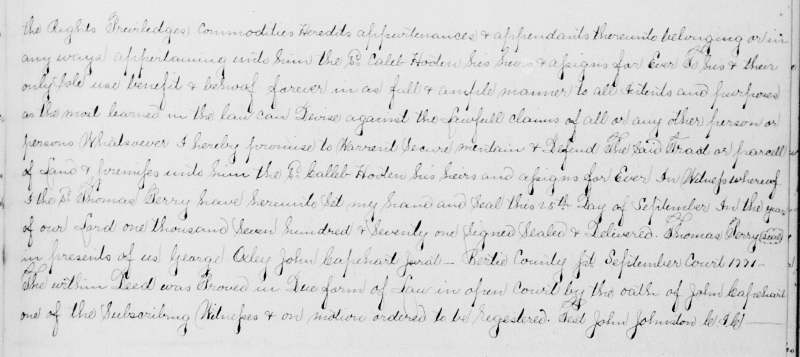 the Rights Priviledges Commodities Heredits appurtenances & appendants thereunto belonging or in
any ways appertaining unto him the Sd. Caleb Hoden his heirs & assigns for Ever To his & their
only use benefit & behoof forever in as full & ample manner to all Intents and purposes
as the most learned in the law can Devise against the Lawfull claims of all or any other person or
persons Whatsoever I hereby promise to Warrent Secure mentain & Defend The Said Tract or parcell
of Land & premises unto him the Sd. Calleb Hoden his heirs and assigns for Ever In Witness whereof
I the Sd. Thomas Perry have hereunto Set my hand and Seal this 25th. Day of September In the year
of our Lord one thousand Seven hundred & Seventy one Signed Sealed & Delivered. Thomas Perry (Seal)
in presents of us George Oxley John Capehart Jurat — Bertie County Sst September Court 1771 —
The within Deed was Proved in Due form of Law in open Court by the oath of John Capehart
one of the Subscribing Witnesses & on motion ordered to be registered. Test John Johnston